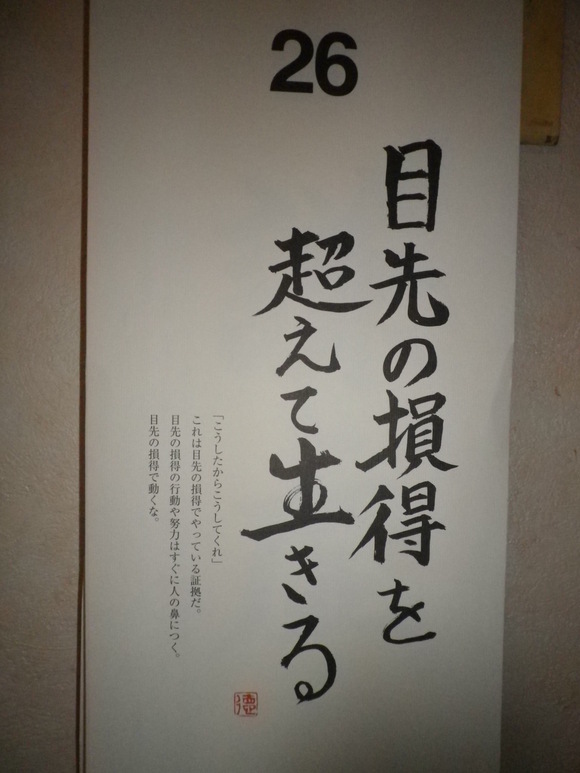 26
目先の損得を
超えて生きる
「こうしたからこうしてくれ」
これは目先の損得でやっている証拠だ。
目先の損得の行動や努力はすぐに人の鼻につく。
目先の損得で動くな。
徳